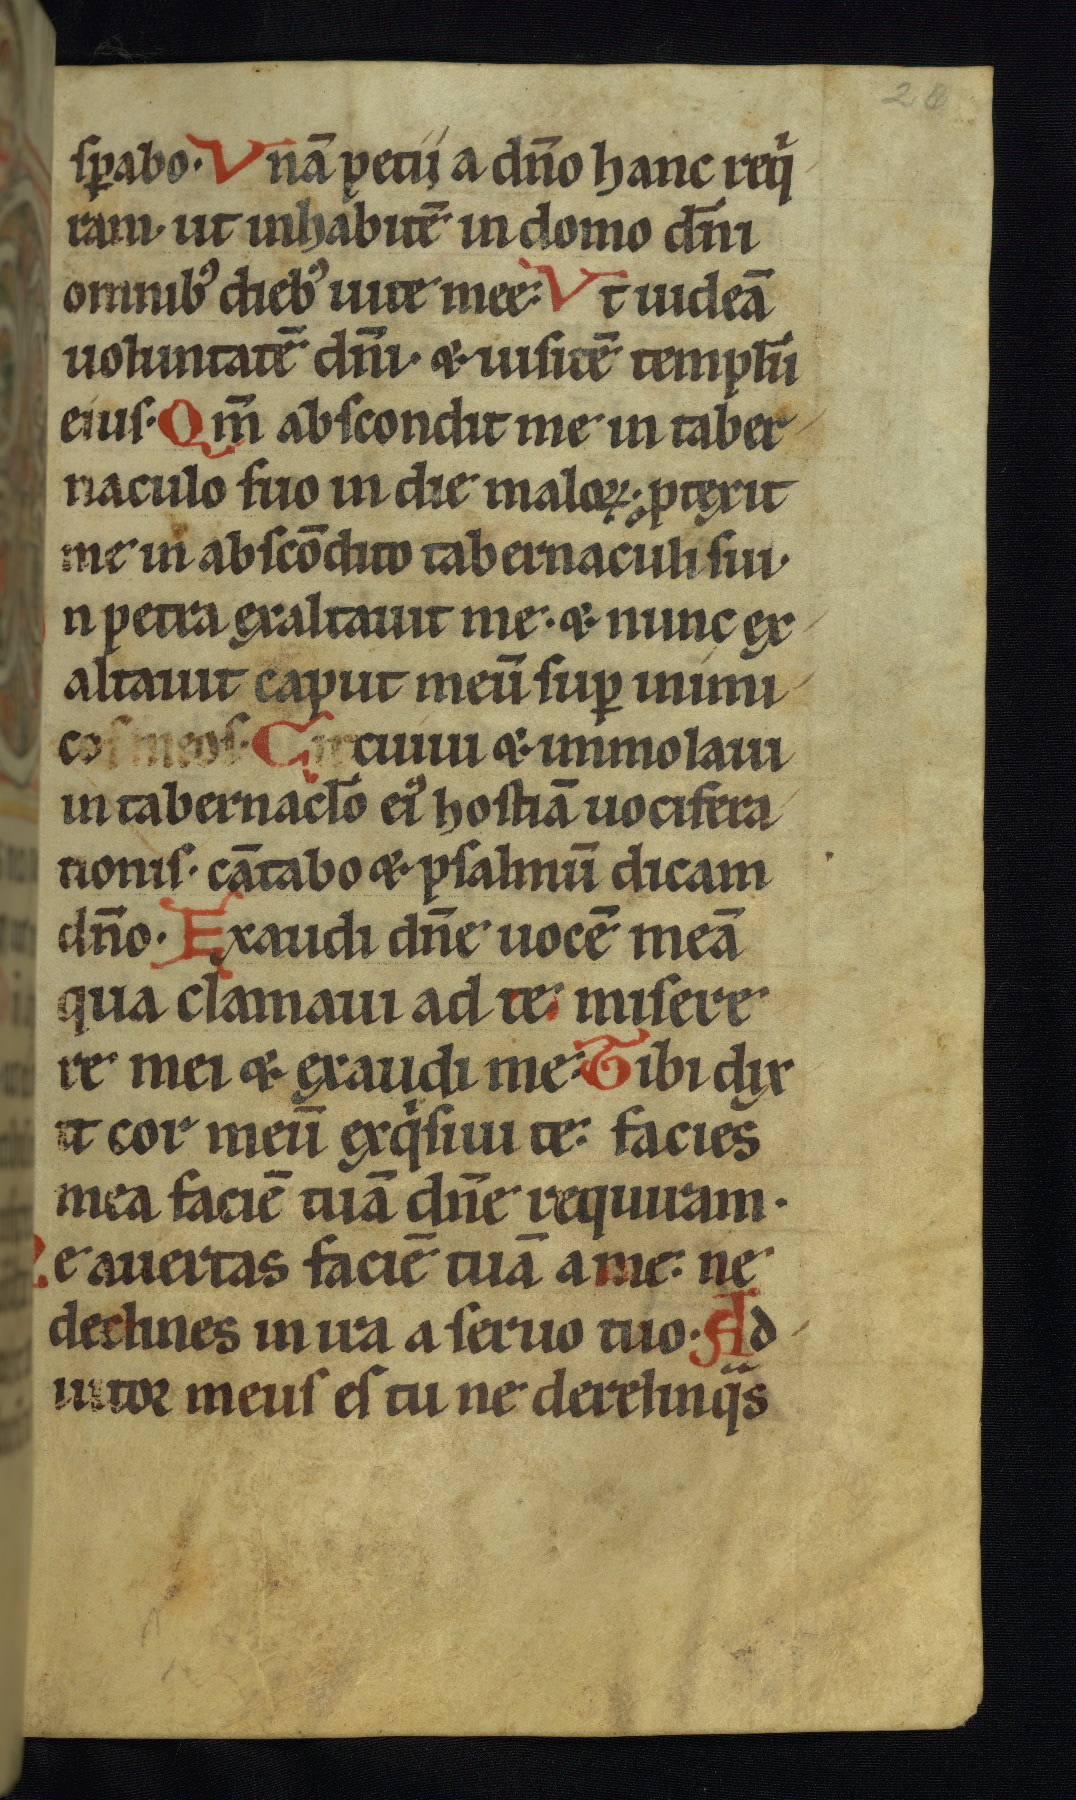 28
sꝑabo· Vnā petii a dn̄o hanc reqͥ
ram· ut inhabitē in domo dn̄i
omnibꝰ diebꝰ uite mee: Vt uideā
uoluntatē dn̄i· & uisitē templū
eius· Qm̄ abscondit me in taber
naculo suo in die maloꝝ: ꝓtexit
me in abscōdito tabernaculi sui·
n petra exaltauit me· & nunc ex
altauit caput meū suꝑ inimi
cos meos· Circuiui & immolaui
in tabernac̄lo eiꝰ hostiā uocifera
tionis· cātabo & psalmū dicam
dn̄o· Exaudi dn̄e uocē meā
qua clamaui ad te· misere
re mei & exaudi me: Tibi dix
it cor meū exqͥsiui te: facies
mea faciē tuā dn̄e requiram·
Ne auertas faciē tuā a me: ne
declines in ira a seruo tuo· Ad
iutor meus es tu ne derelinqͣs